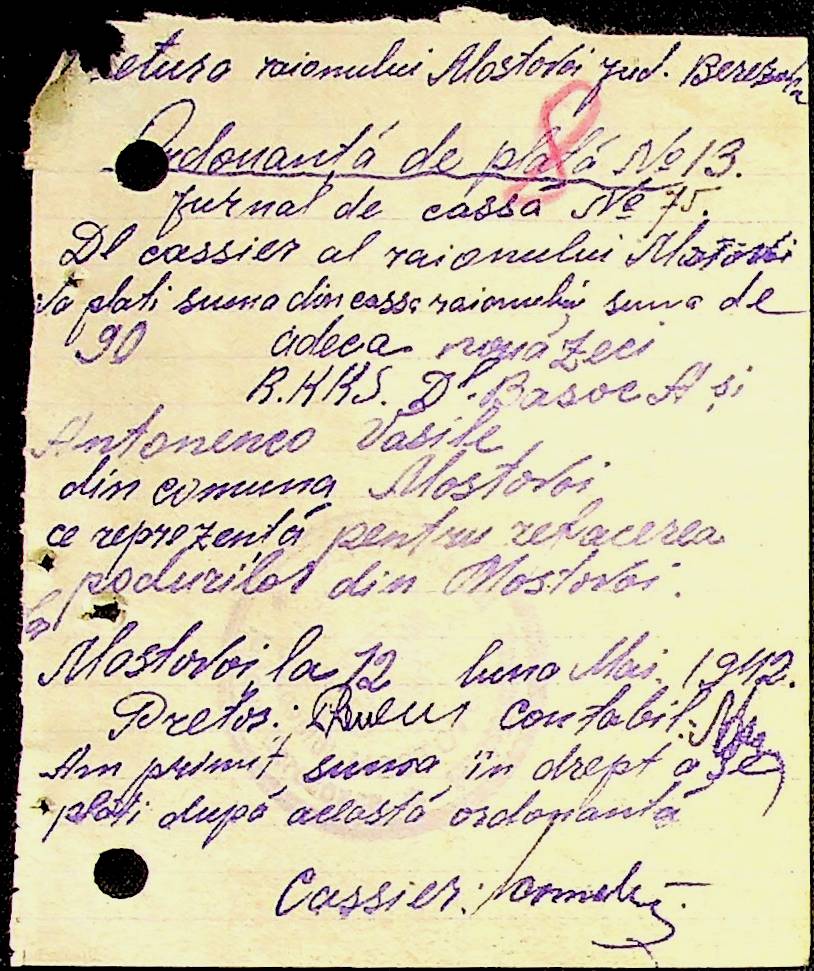 raionului Mostovoi jud. Berezovca
Ordonantá de platá № 13.
8
Jurnal de cassá № 75.
Dl cassier al raionului Mostovoi
va plati suma din cassa raionului suma de
90 adeca nouázeci
R.K.K.S. Dl. Basoc A și
Antonenco Vasile
din comuna Mostovoi
ce reprezentá pentru refacerea
podurilor din Mostovoi.
Mostovoi, la 12 luna Mai 1942.
Pretor: contabil:
Am primit suma in drept a se
plati dupá aceastá ordonantá
Cassier: